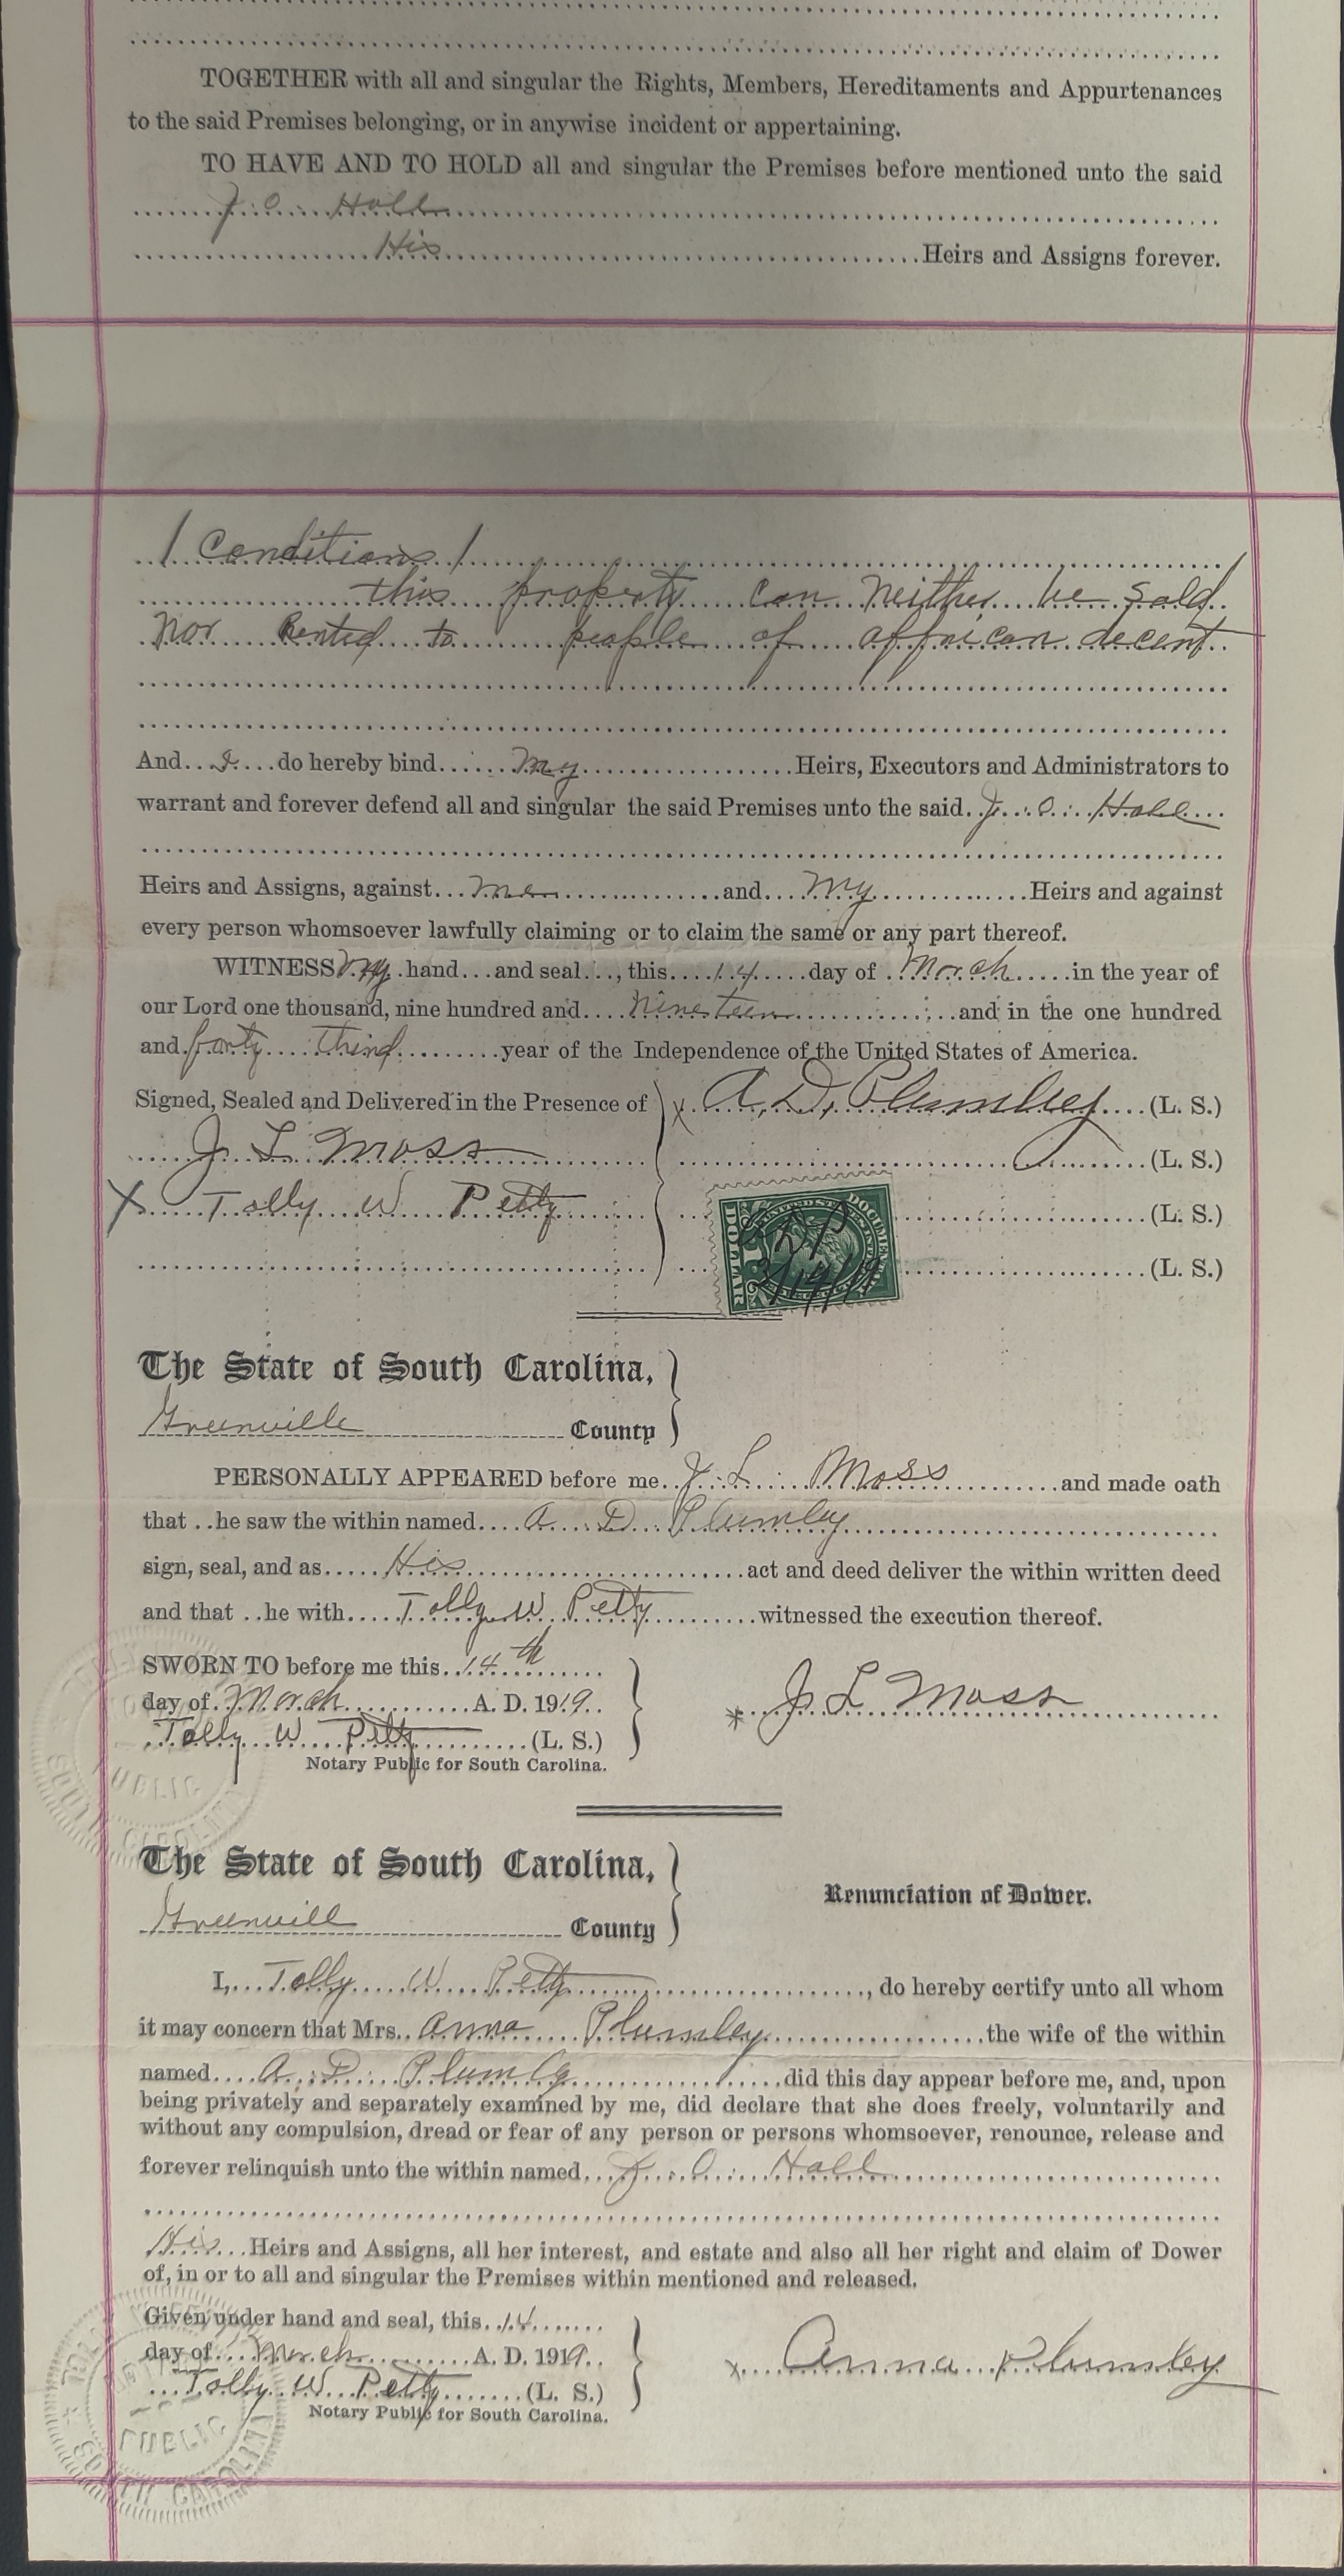 TOGETHER with all and singular the Rights, Members, Hereditaments and Appurtenances
to the said Premises belonging, or in anywise incident or appertaining.
TO HAVE AND TO HOLD all and singular the Premises before mentioned unto the said
J. O. Hall
His Heirs and Assigns forever.
/ Conditions /
this property can neither be sold
nor Rented to people of affrican decent
And I do hereby bind my Heirs, Executors and Administrators to
warrant and forever defend all and singular the said Premises unto the said J. O. Hall
Heirs and Assigns, against me and my Heirs and against
every person whomsoever lawfully claiming or to claim the same or any part thereof.
WITNESS my hand and seal, this 14 day of March in the year of
our Lord one thousand, nine hundred and nineteen and in the one hundred
and forty third year of the Independence of the United States of America.
Signed, Sealed and Delivered in the Presence of } x A. D. Plumbley (L. S.)
J. L. Moss (L. S.)
X Tolly W Petty (L. S.)
(L. S.)
DOCUMENTARY
DOLLAR
3/14/19
The State of South Carolina,
Greenville County
PERSONALLY APPEARED before me J. L. Moss and made oath
that he saw the within named A. D. Plumley
sign, seal, and as His act and deed deliver the within written deed
and that he with Tolly W Petty witnessed the execution thereof.
SWORN TO before me this 14th
day of March A. D. 1919.
* J. L. Moss
Tolly W Petty (L. S.)
Notary Public for South Carolina.
PUBLIC
SOUTH CAROLINA
The State of South Carolina,
Renunciation of Dower.
Greenvill County
I, Tolly W Petty, do hereby certify unto all whom
it may concern that Mrs. Anna Plumley the wife of the within
named A. D. Plumly did this day appear before me, and, upon
being privately and separately examined by me, did declare that she does freely, voluntarily and
without any compulsion, dread or fear of any person or persons whomsoever, renounce, release and
forever relinquish unto the within named J. O. Hall
His Heirs and Assigns, all her interest, and estate and also all her right and claim of Dower
of, in or to all and singular the Premises within mentioned and released.
Given under hand and seal, this 14
day of March A. D. 1919.
x Anna Plumley
Tolly W Petty (L. S.)
Notary Public for South Carolina.
PUBLIC
SOUTH CAROLINA